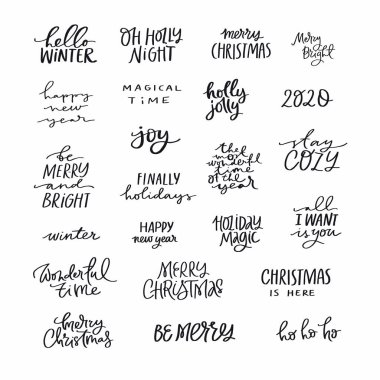 hello
WINTER
OH HOLLY
NIGHT
merry
CHRISTMAS
Merry
Bright
happy
new
year
MAGICAL
TIME
holly
jolly
2020
joy
stay
COZY
be
MERRY
and
BRIGHT
FINALLY
holidays
the
most
wonderful
time
of the
year
all
I WANT
is you
winter
HAPPY
new year
HOLIDAY
MAGIC
Wonderful
time
MERRY
CHRISTMAS
CHRISTMAS
IS HERE
merry
Christmas
BE MERRY
ho ho ho